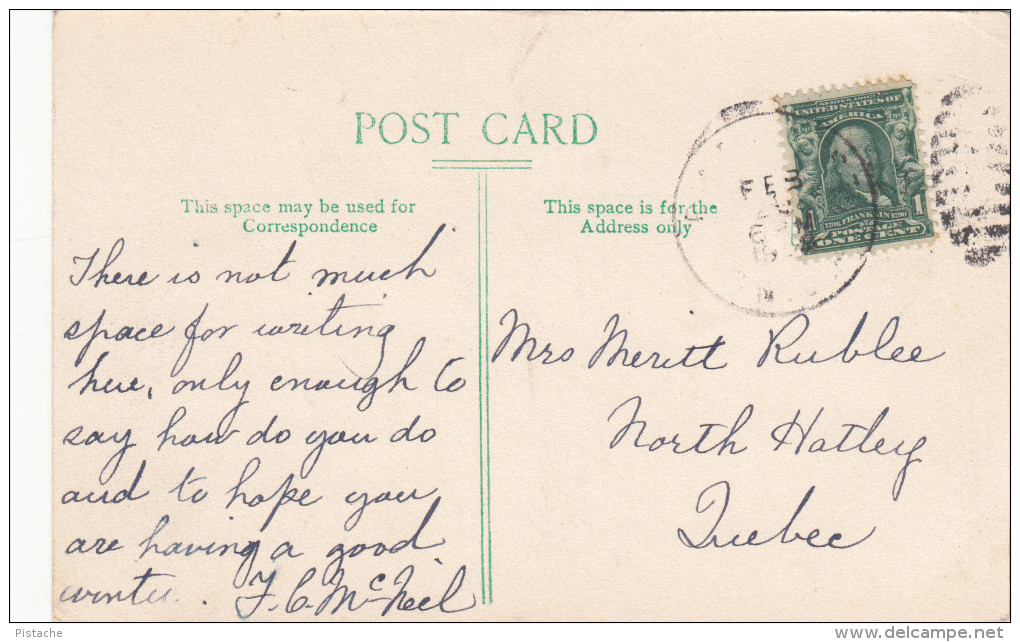 POST CARD
This space may be used for
Correspondence
This space is for the
Address only
SERIES 1902
UNITED STATES OF
AMERICA
1706 FRANKLIN 1790
POSTAGE
ONE CENT
1
FEB
There is not much
space for writing
here, only enough to
say how do you do
and to hope you
are having a good
winter. F. C. McNeil
Mrs Meritt Rublee
North Hatley
Quebec
Pistache
delcampe.net